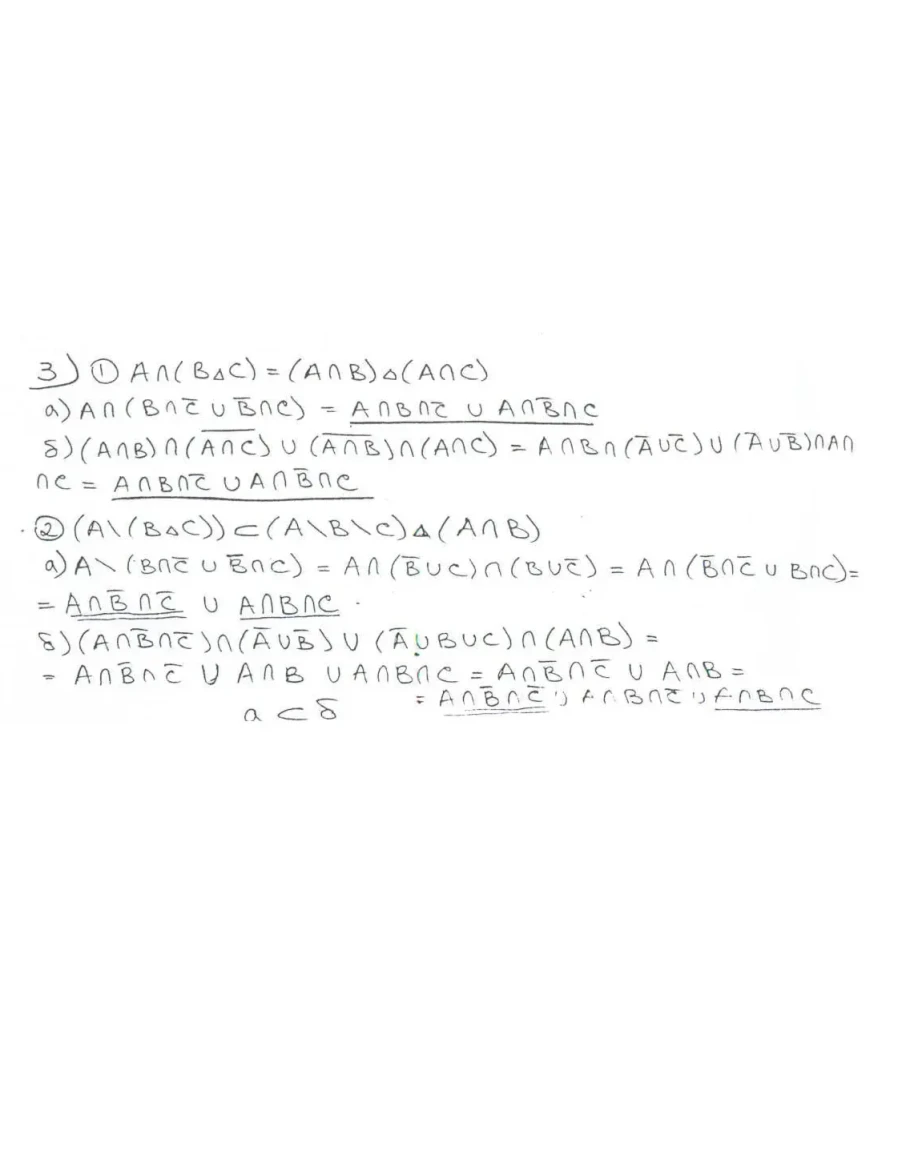 3) ① A∩(B△C) = (A∩B)△(A∩C)
а) A∩(B∩C̅ ∪ B̅∩C) = A∩B∩C̅ ∪ A∩B̅∩C
б) (A∩B)∩(A̅∩̅C̅) ∪ (A̅∩̅B̅)∩(A∩C) = A∩B∩(A̅∪C̅)∪(A̅∪B̅)∩A∩
∩C = A∩B∩C̅ ∪ A∩B̅∩C
② (A\(B△C)) ⊂ (A\B\C)△(A∩B)
а) A\(B∩C̅ ∪ B̅∩C) = A∩(B̅∪C)∩(B∪C̅) = A∩(B̅∩C̅ ∪ B∩C)=
= A∩B̅∩C̅ ∪ A∩B∩C
б) (A∩B̅∩C̅)∩(A̅∪B̅) ∪ (A̅∪B∪C)∩(A∩B) =
= A∩B̅∩C̅ ∪ A∩B ∪ A∩B∩C = A∩B̅∩C̅ ∪ A∩B =
= A∩B̅∩C̅ ∪ A∩B∩C̅ ∪ A∩B∩C
а ⊂ б